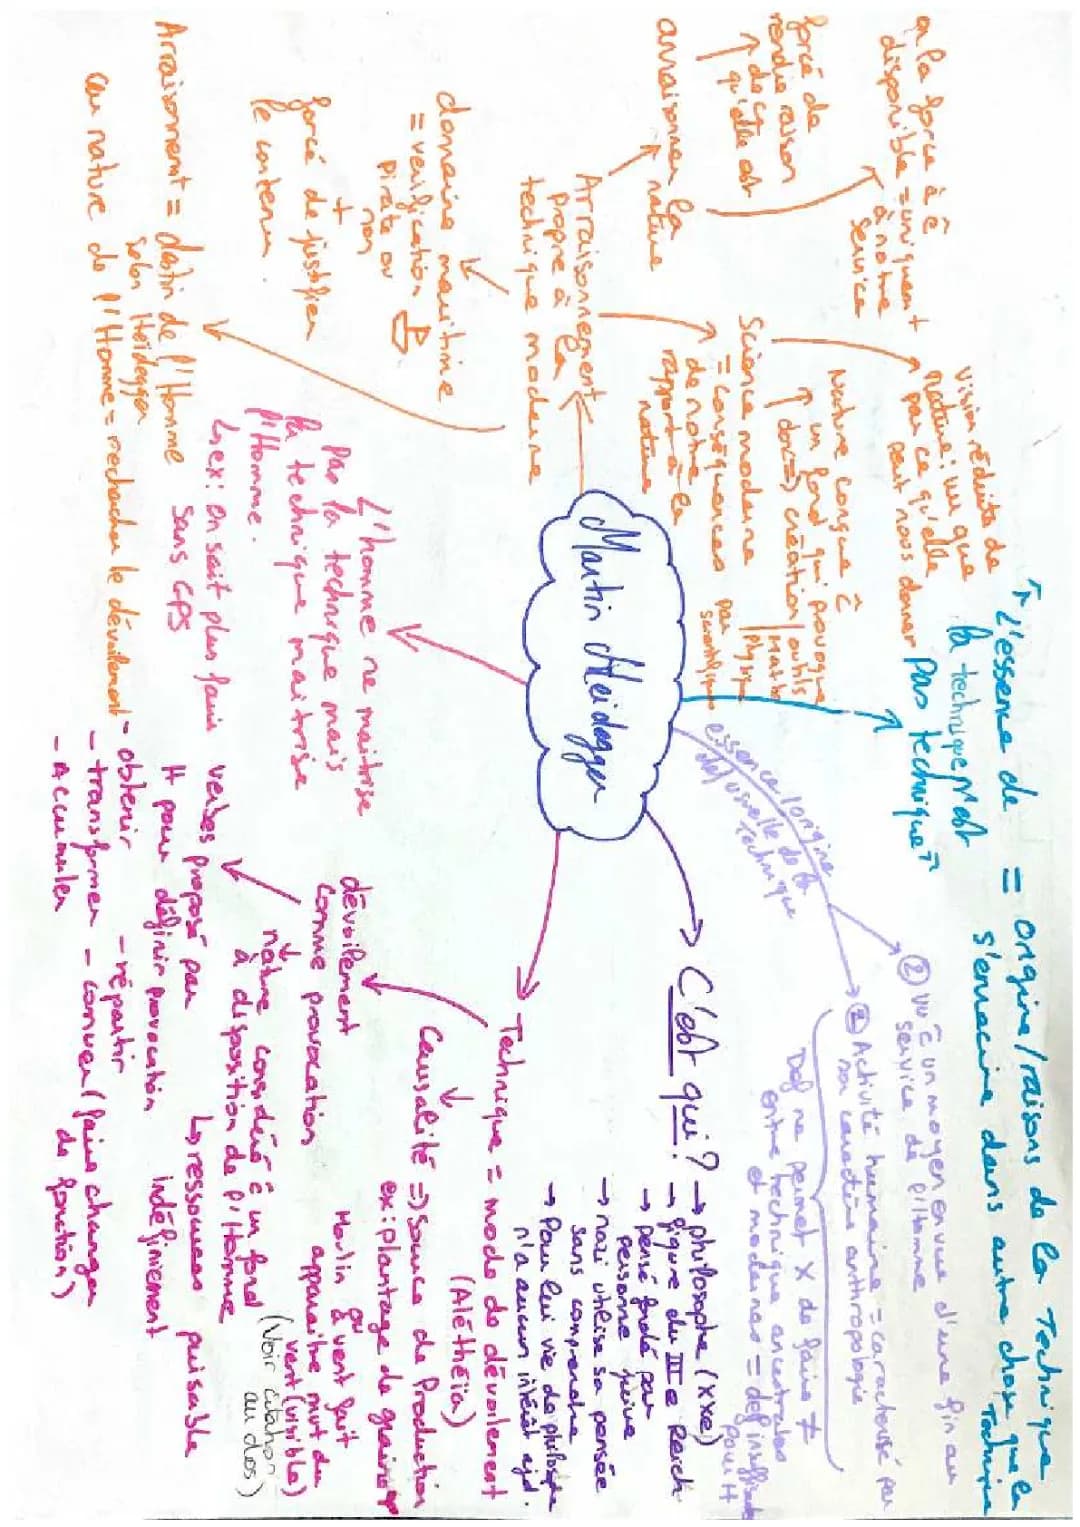 Martin Heidegger
C'est qui ?
→ philosophe (XXe)
→ figure du IIIe Reich
→ pensé fondé par
personne juive
→ nazi utilise sa pensée
sans comprendre
→ Pour lui vie de philosophe
n'a aucun intérêt ajd.
"L'essence de
la technique n'est
pas technique"
= origine/raisons de la Technique
s'enracine dans autre chose que la
Technique
essence/origine
def usuelle de la
Technique
② vu c̄ un moyen en vue d'une fin au
service de l'Homme
① Activité humaine = caractérisé par
son caractère anthropologie
Def ne permet X de faire ≠
entre technique ancestrales
et modernes = def insuffisante
pour H
Technique = mode de dévoilement
(Alétheia)
Causalité => Source de Production
ex : plantage de grains
Moulin à vent fait
apparaitre mvt du
vent (visible)
(Voir citation
au dos)
dévoilement
comme provocation
nature considéré c̄ un fond
à disposition de l'Homme
↳ ressources puisable
indéfiniment
verbes proposé par
H pour définir provocation
- obtenir
- transformer
- Accumuler
- répartir
- commuer (faire changer
de fonction)
L'homme ne maitrise
pas la technique mais
la technique maitrise
l'Homme.
↳ ex : On sait plus faire
sans GPS
Arraisonnement
propre à la
technique moderne
arraisonner la
nature
forcé de
rendre raison
de ce
qu'elle est
on la force à ê
disponible = uniquement
à notre
service
domaine maritime
= verification
pirate ou
non
+
forcé de justifier
le contenu.
Science moderne
= conséquences
de notre
rapport à la
nature
Nature conçue c̄
un fond qui provoque
donc => création outils
Maths
physique
par
scientifiques
Vision réduite de
nature : vu que
par ce qu'elle
peut nous donner
Arraisonnement = destin de l'Homme
selon Heidegger
car nature de l'Homme = rechercher le dévoilement